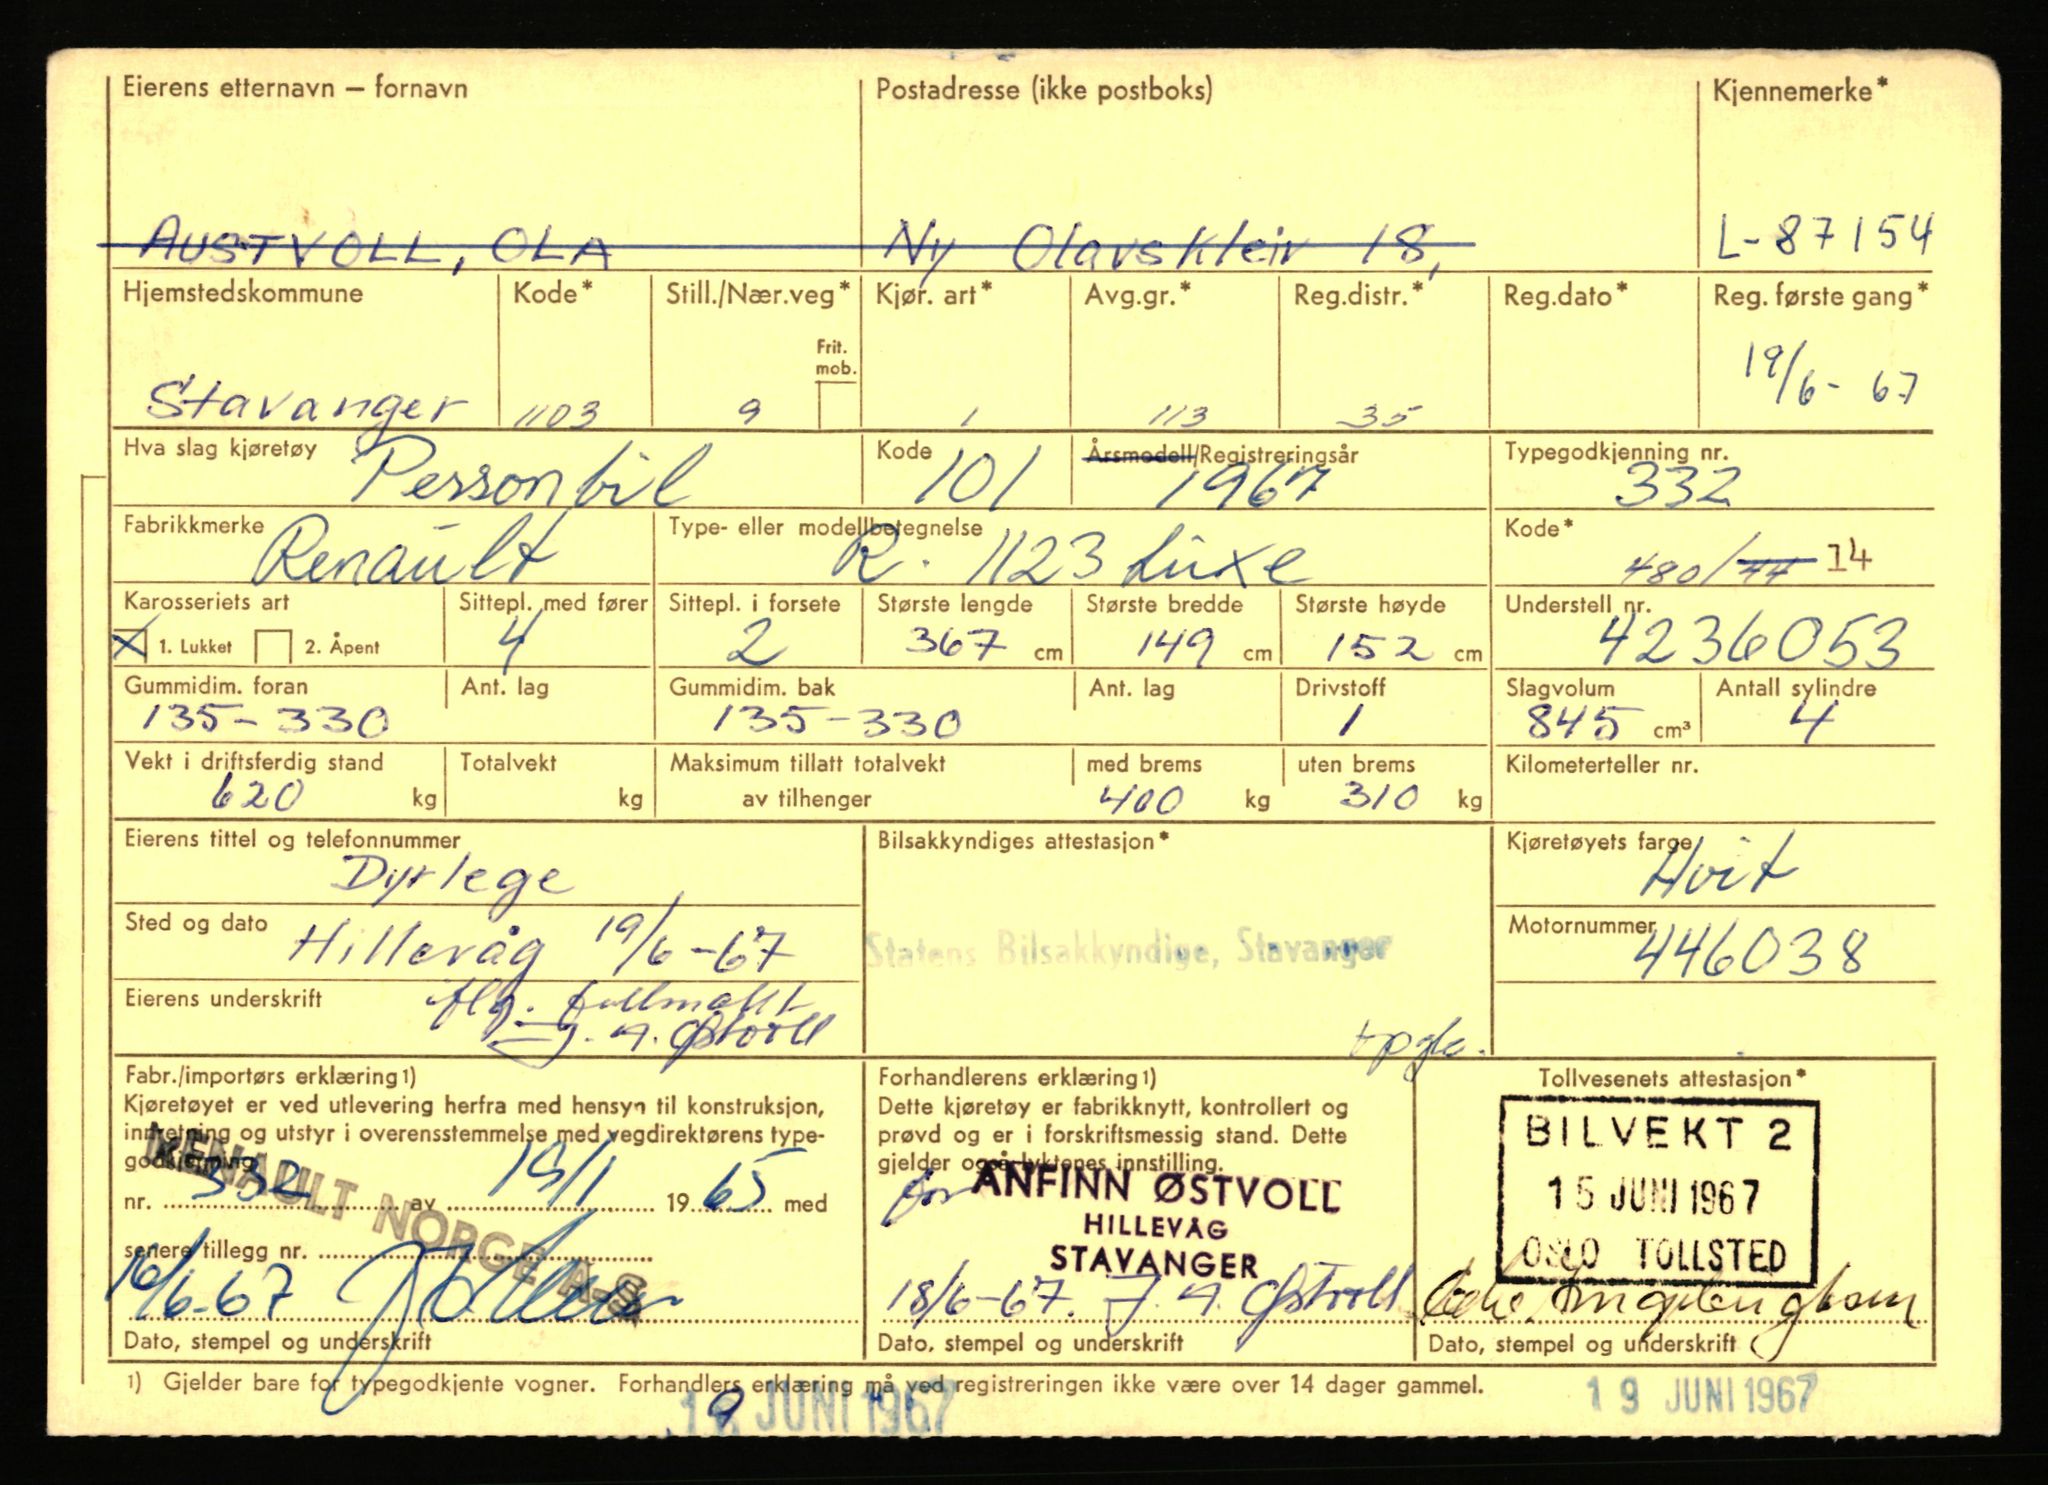 Eierens etternavn – fornavn Postadresse (ikke postboks) Kjennemerke*
AUSTVOLL, OLA Ny Olavskleiv 18, L-87154
Hjemstedskommune Kode* Still./Nær.veg* Kjør. art* Avg.gr.* Reg.distr.* Reg.dato* Reg. første gang*
Frit. mob.
19/6- 67
Stavanger 1103 9 1 113 35
Hva slag kjøretøy Personbil Kode 101 Årsmodell/Registreringsår 1967 Typegodkjenning nr. 332
Fabrikkmerke Renault Type- eller modellbetegnelse R. 1123 Luxe Kode* 480/77 14
Karosseriets art Sittepl. med fører Sittepl. i forsete Største lengde Største bredde Største høyde Understell nr.
X 1. Lukket 2. Åpent 4 2 367 cm 149 cm 152 cm 4236053
Gummidim. foran Ant. lag Gummidim. bak Ant. lag Drivstoff Slagvolum Antall sylindre
135-330 135-330 1 845 cm³ 4
Vekt i driftsferdig stand Totalvekt Maksimum tillatt totalvekt med brems uten brems Kilometerteller nr.
620 kg kg av tilhenger 400 kg 310 kg
Eierens tittel og telefonnummer Bilsakkyndiges attestasjon* Kjøretøyets farge
Dyrlege Hvit
Sted og dato Hillevåg 19/6-67 Statens Bilsakkyndige, Stavanger Motornummer 446038
Eierens underskrift iflg. fullmakt
J. A. Østvoll
Fabr./importørs erklæring 1) Forhandlerens erklæring 1) Tollvesenets attestasjon*
Kjøretøyet er ved utlevering herfra med hensyn til konstruksjon, Dette kjøretøy er fabrikknytt, kontrollert og BILVEKT 2
innretning og utstyr i overensstemmelse med vegdirektørens type- prøvd og er i forskriftsmessig stand. Dette
godkjenning gjelder også lyktenes innstilling. 15 JUNI 1967
nr. 332 av 19/1 1965 med for ANFINN ØSTVOLL
RENAULT NORGE A-S HILLEVÅG OSLO TOLLSTED
senere tillegg nr. STAVANGER
16/6-67 18/6-67. J. A. Østvoll
Dato, stempel og underskrift Dato, stempel og underskrift Dato, stempel og underskrift
1) Gjelder bare for typegodkjente vogner. Forhandlers erklæring må ved registreringen ikke være over 14 dager gammel.
19 JUNI 1967 19 JUNI 1967